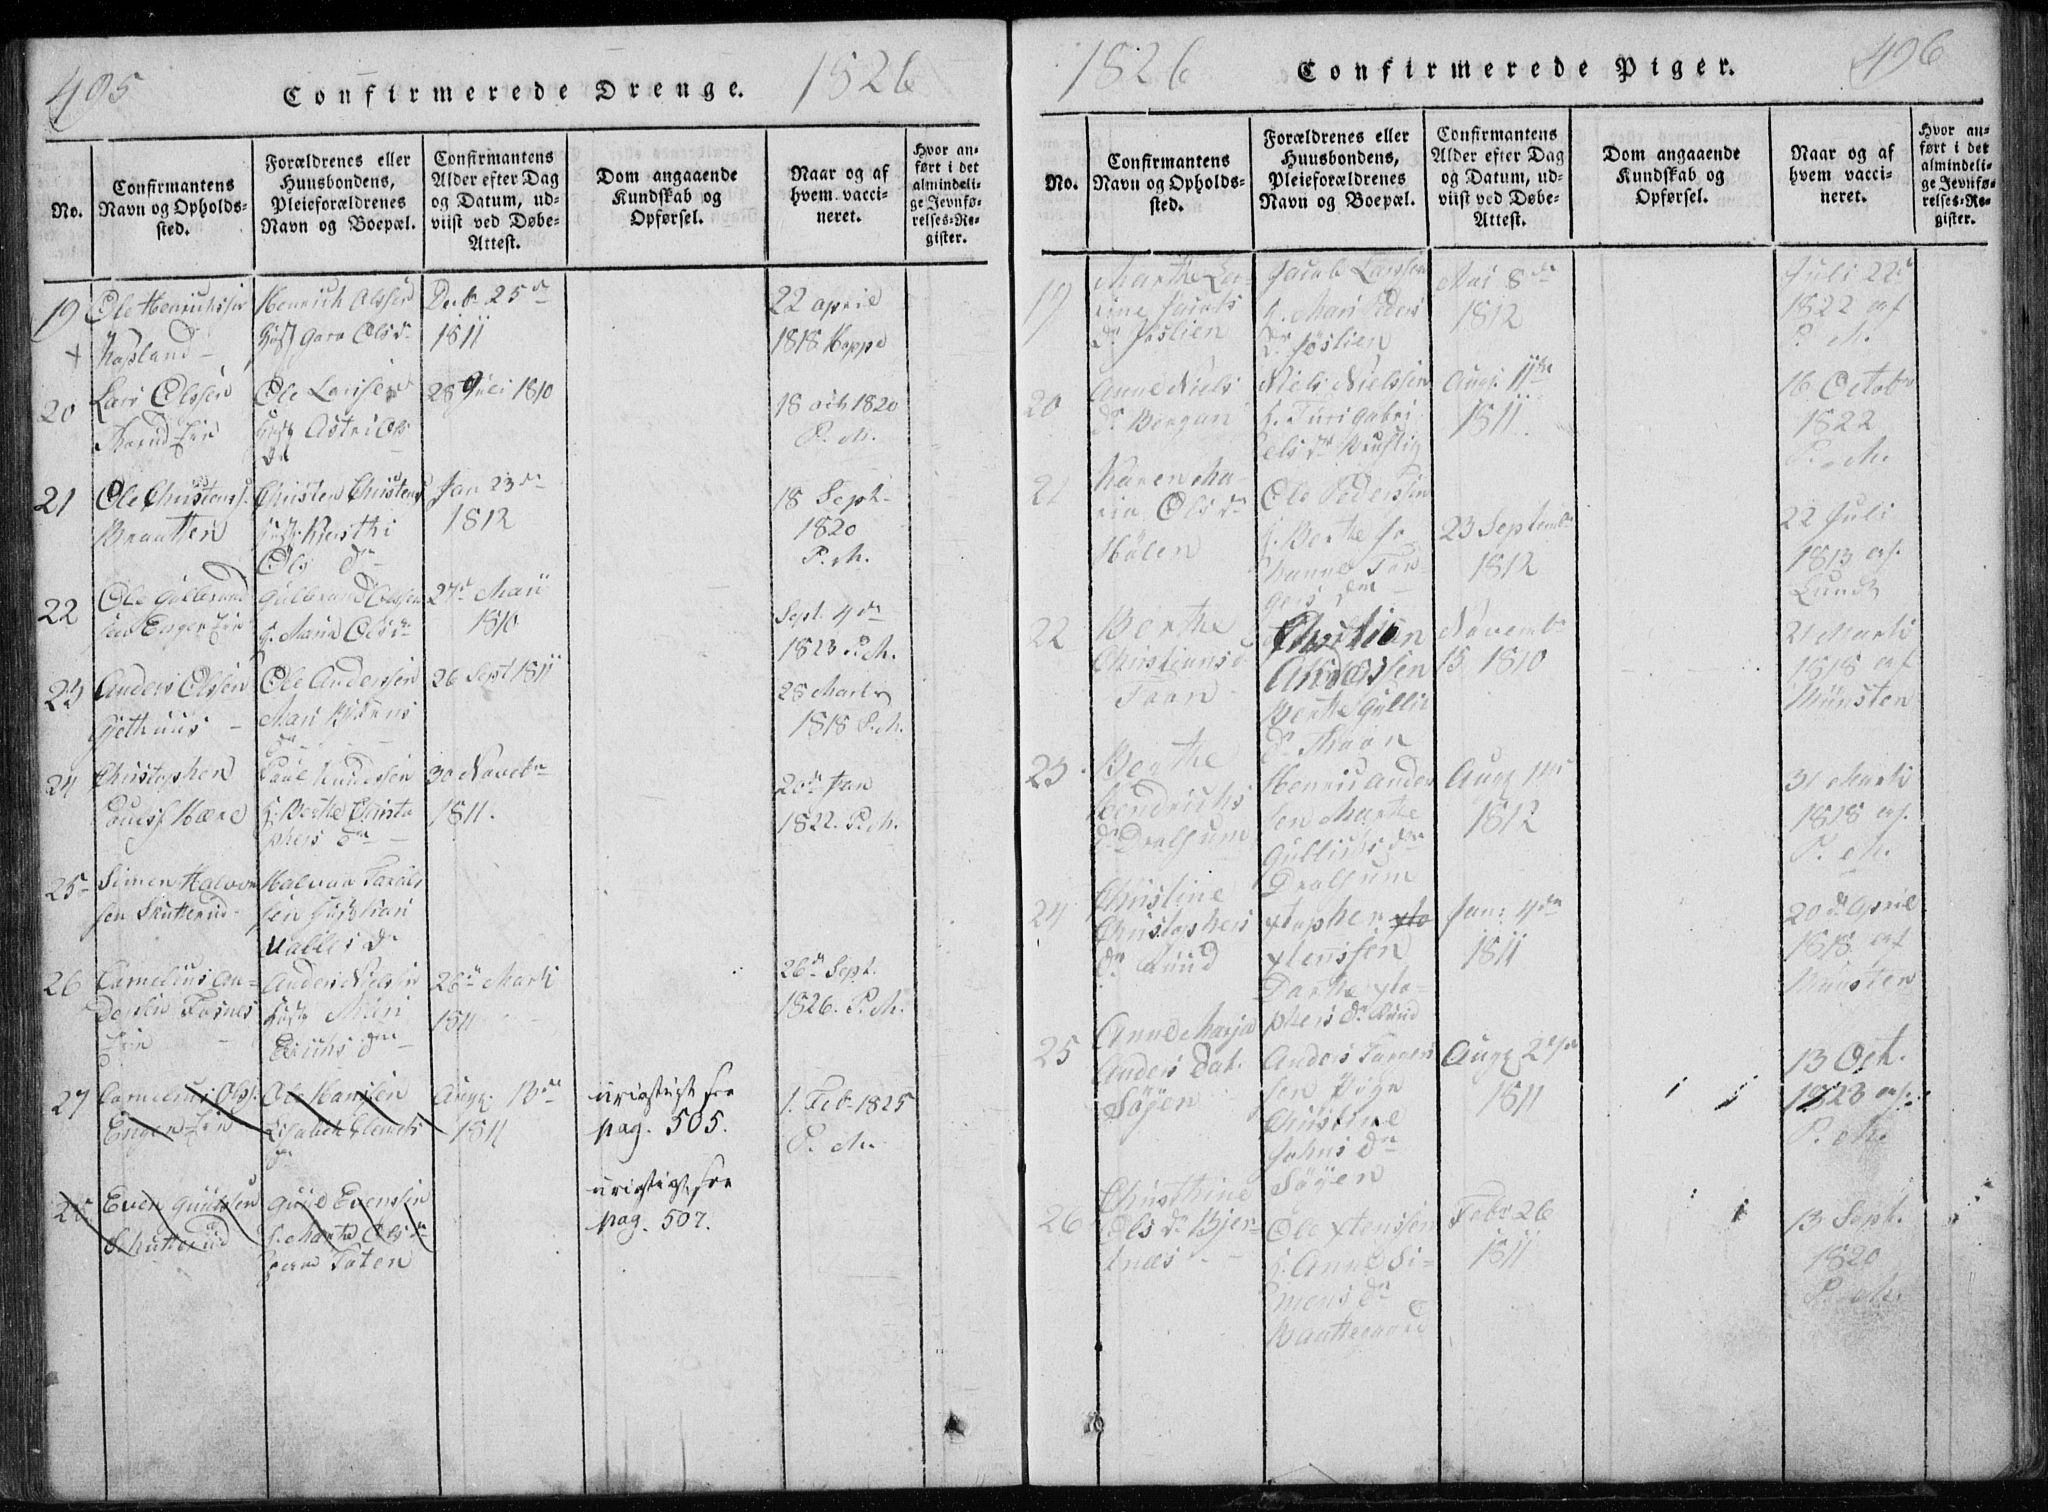 495
Confirmerede Drenge.
1826
No.
Confirmantens
Navn og Opholds-
sted.
Forældrenes eller
Huusbondens,
Pleieforældrenes
Navn og Boepæl.
Confirmantens
Alder efter Dag
og Datum, ud-
viist ved Døbe-
Attest.
Dom angaaende
Kundskab og
Opførsel.
Naar og af
hvem vacci-
neret.
Hvor an-
ført i det
almindeli-
ge Jevnfø-
relses-Re-
gister.
19
Ole Henrichssen
Henrich Olssen
Decbr 25de
1811
22 april
1818 Koppe
20
Lars Olssen
Ole Larssen
Astri Ols
dr
28 Juli 1810
18 Oct 1820
P. M.
21
Ole Christens.
Braatten
Christen Christens
Kersthi
Ols dr
Jan 23de
1812
18 Sept.
1820
P. M.
22
Ole Gulbrand
sen Enger Eie
Gulbrand Olssen
h. Maria Ols dr
27de Marti
1810
Sept. 4de
1823 P. M.
23
Anders Olssen
Gjethuus
Ole Anderssen
Mari
dr
26 Sept 1811
28 Marti
1818 P. M.
24
Christopher
Pouels. Hære
Poul Knudssen
h. Berthe Christo
phers dr
30 Novebr
1811.
20de Jan
1822. P. M.
25
Simen Halvor
sen Skutterud
Halvor
dr
26
Cornelius An-
dersen Fosnes
Eie
Anders Nielsen
Mari
Erichs dr
26de Marti
1811
26de Sept.
1826. P. M.
27
Cornelius Ols.
Enger Eie
Ole Hansen
Lisabeth Clemets
dr
Augg. 13de
1811
urigtigt see
pag. 505.
1. Feb. 1825
P. M.
28
Even Guulssen
Skutterud
Guul Evenssen
h. Marthe Ols dr
Toten
urigtigt, see
pag. 507.
1826
Confirmerede Piger.
496
No.
Confirmantens
Navn og Opholds-
sted.
Forældrenes eller
Huusbondens,
Pleieforældrenes
Navn og Boepæl.
Confirmantens
Alder efter Dag
og Datum, ud-
viist ved Døbe-
Attest.
Dom angaaende
Kundskab og
Opførsel.
Naar og af
hvem vacci-
neret.
Hvor an-
ført i det
almindeli-
ge Jevnfø-
relses-Re-
gister.
19
Marthe Ca-
rine Jacobs
dr Jøslien
Jacob Larssen
h. Mari Peders
dr Jøslien
Mai 8de
1812
Juli 22de
1822 af
P. M.
20
Anne Niels
dr Bergan
Niels Nielssen
h. Turi Gabri
els dr
Augs. 11de
1811
16 Octobr
1822
P. M.
21
Karen Ma-
ria Ols dr
Hølen
Ole Pederssen
h. Berthe Jo
hanne Tor
gers dr
23 Septembr
1812
22 Juli
1813 af
Lund
22
Berthe
Christians d
Faan
Christian
Anderssen
Berthe Gullic
dr Thaan
Novembr
15 1810
21 Marti
1818 af
Münster
23
Berthe
Hendrichs
dr Dralsum
Henric Ander
sen Marthe
Gullichs dr
Dralsum
Augg 1de
1812
31 Marti
1818 af
P. M.
24
Christine
Christophers
dr Ruud
xtopher xto
xtenssen
Dorthe xto-
phers dr Ruud
Jan: 4de
1811
20de April
1818 af
Münster
25
Anne Marja
Anders Dat.
Søjen
Anders
sen
Christine
Johns dr
Søyen
Augg
1811
13 Oct.
1823 af
P. M.
26
Christhine
Ols dr Bjer-
tnæs
Ole xtenssen
h. Anne Si-
mens dr
Febr 26
1811
13 Sept.
1820
P. M.